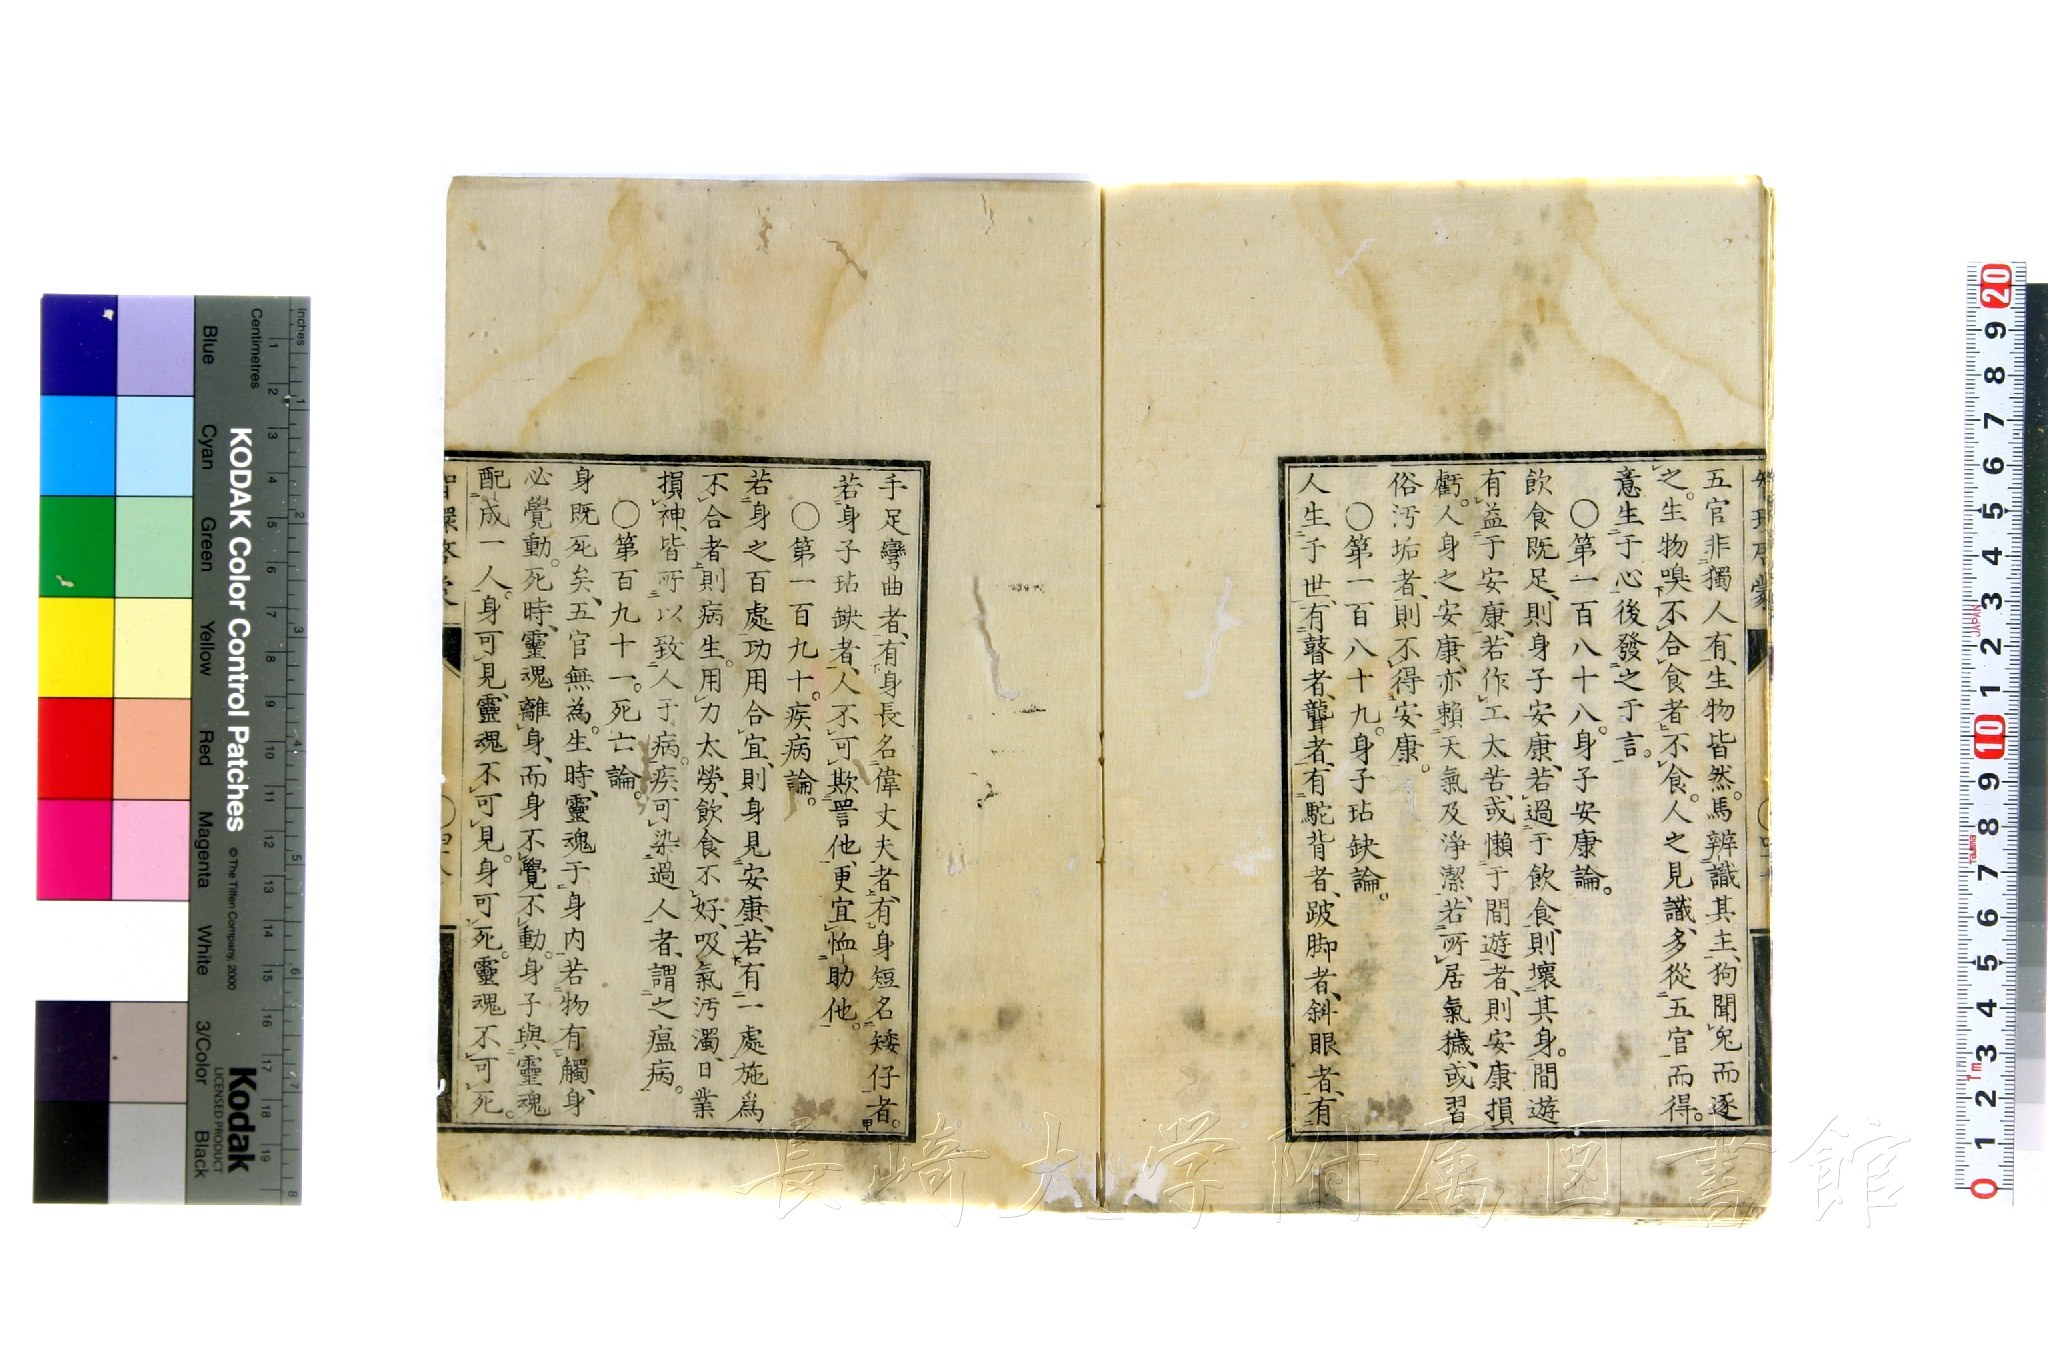 五官非獨人有、生物皆然。馬辨識其主、狗聞兔而逐
之。生物嗅不合食者、不食。人之見識、多從五官而得。
意生于心後發之于言。
○第一百八十八。身子安康論。
飲食既足、則身子安康、若過于飲食、則壞其身。閒遊
有益于安康、若作工太苦、或懶于閒遊者、則安康損
虧。人身之安康、亦賴天氣及淨潔、若所居氣穢、或習
俗汚垢者、則不得安康。
○第一百八十九。身子玷缺論。
人生于世、有瞽者、聾者、有駝背者、跛脚者、斜眼者、有
手足彎曲者、有身長名偉丈夫者、有身短名矮仔者。
若身子玷缺者、人不可欺詈他、更宜恤助他。
○第一百九十。疾病論。
若身之百處功用合宜、則身見安康、若有一處施爲
不合者、則病生。用力太勞、飲食不好、吸氣汚濁、日業
損神、皆所以致人于病。疾可染過人者、謂之瘟病。
○第百九十一。死亡論。
身既死矣、五官無為。生時、靈魂于身内、若物有觸、身
必覺動。死時、靈魂離身、而身不覺不動。身子與靈魂
配成一人。身可見、靈魂不可見。身可死。靈魂不可死。
智環啓蒙
KODAK Color Control Patches
© The Tiffen Company, 2000
Kodak
LICENSED PRODUCT
Inches
Centimetres
Blue
Cyan
Green
Yellow
Red
Magenta
White
3/Color
Black
1 2 3 4 5 6 7 8 9 10 11 12 13 14 15 16 17 18 19
1 2 3 4 5 6 7 8
20 9 8 7 6 5 4 3 2 1 10 9 8 7 6 5 4 3 2 1 0
JAPAN
長崎大学附属図書館